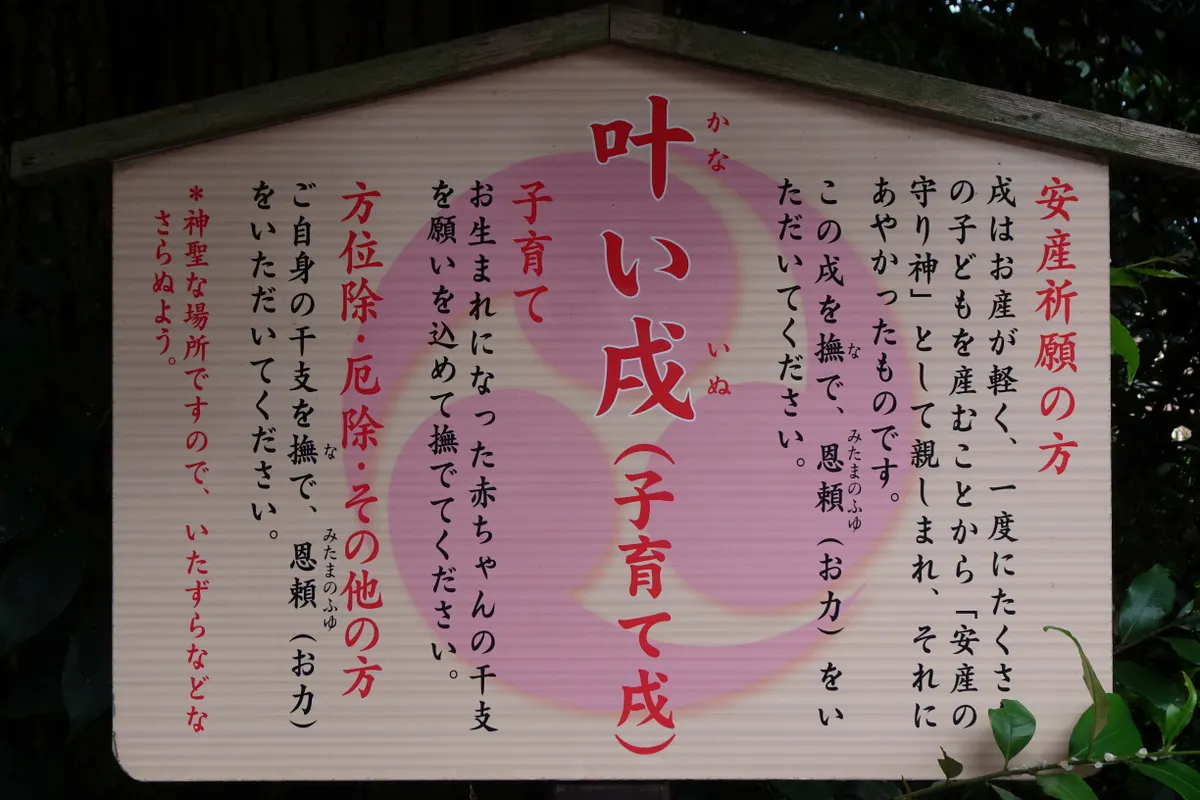 安産祈願の方
戌はお産が軽く、一度にたくさ
の子どもを産むことから「安産の
守り神」として親しまれ、それに
あやかったものです。
この戌を撫で、恩頼(お力)をい
な
みたまのふゆ
ただいてください。
叶い戌(子育て戌)
かな
いぬ
子育て
お生まれになった赤ちゃんの干支
を願いを込めて撫でてください。
方位除・厄除・その他の方
ご自身の干支を撫で、恩頼(お力)
な
みたまのふゆ
をいただいてください。
*神聖な場所ですので、いたずらなどな
さらぬよう。